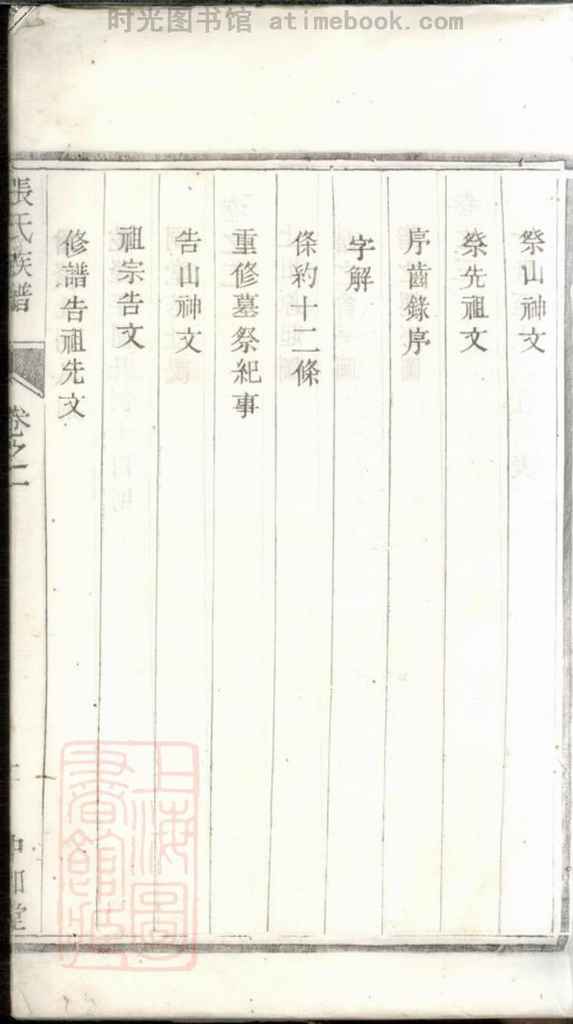 时光图书馆 atimebook.com
祭山神文
祭先祖文
序齒錄序
字解
條約十二條
重修墓祭紀事
告山神文
祖宗告文
修譜告祖先文
張氏族譜
卷之一
中和堂
上海圖書館藏